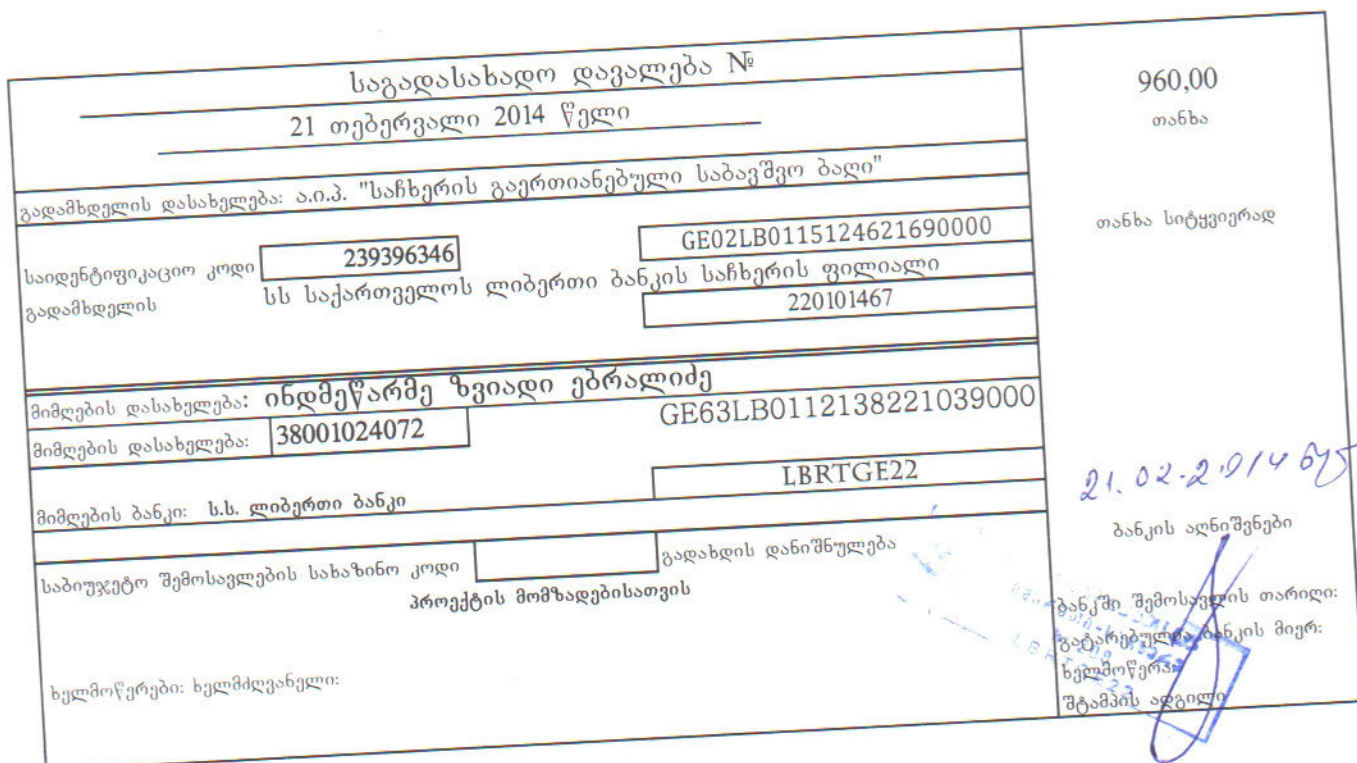 საგადასახადო დავალება №
21 თებერვალი 2014 წელი
გადამხდელის დასახელება: ა.ი.პ. "საჩხერის გაერთიანებული საბავშვო ბაღი"
საიდენტიფიკაციო კოდი 239396346 GE02LB0115124621690000
გადამხდელის სს საქართველოს ლიბერთი ბანკის საჩხერის ფილიალი
220101467
მიმღების დასახელება: ინდმეწარმე ზვიადი ებრალიძე
მიმღების დასახელება: 38001024072 GE63LB0112138221039000
მიმღების ბანკი: ს.ს. ლიბერთი ბანკი LBRTGE22
საბიუჯეტო შემოსავლების სახაზინო კოდი გადახდის დანიშნულება
პროექტის მომზადებისათვის
ხელმოწერები: ხელმძღვანელი:
960,00
თანხა
თანხა სიტყვიერად
21.02.2014
ბანკის აღნიშვნები
ბანკში შემოსავლის თარიღი:
გატარებულია ბანკის მიერ:
ხელმოწერა:
შტამპის ადგილი